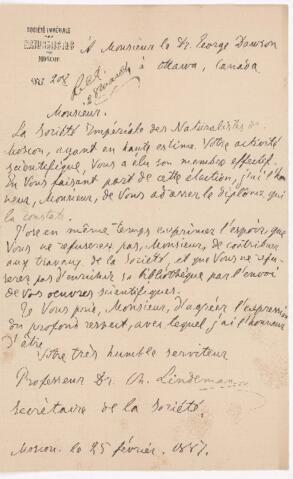 SOCIÉTÉ IMPÉRIALE
DES
NATURALISTES
DE
MOSCOU
N° 208
à Monsieur le Dr. George Dawson
à Ottawa, Canada
Monsieur.
La Société Impériale des Naturalistes de
Moscou, ayant en haute estime Votre activité
scientifique, Vous a élu son membre effectif.
En Vous faisant part de cette élection, j'ai l'hon-
neur, Monsieur, de Vous adresser le diplôme qui
la constate.
J'ose en même temps exprimer l'espoir, que
Vous ne refuserez pas, Monsieur, de contribuer
aux travaux de la Société, et que Vous ne refu-
serez pas d'enrichir sa bibliothèque par l'envoi
de vos oeuvres scientifiques.
Je Vous prie, Monsieur, d'agréer l'expression
du profond respect, avec lequel j'ai l'honneur
d'être
Votre très humble serviteur
Professeur Dr. Ch. Lindeman
Secrétaire de la Société.
Moscou le 25 février 1887.